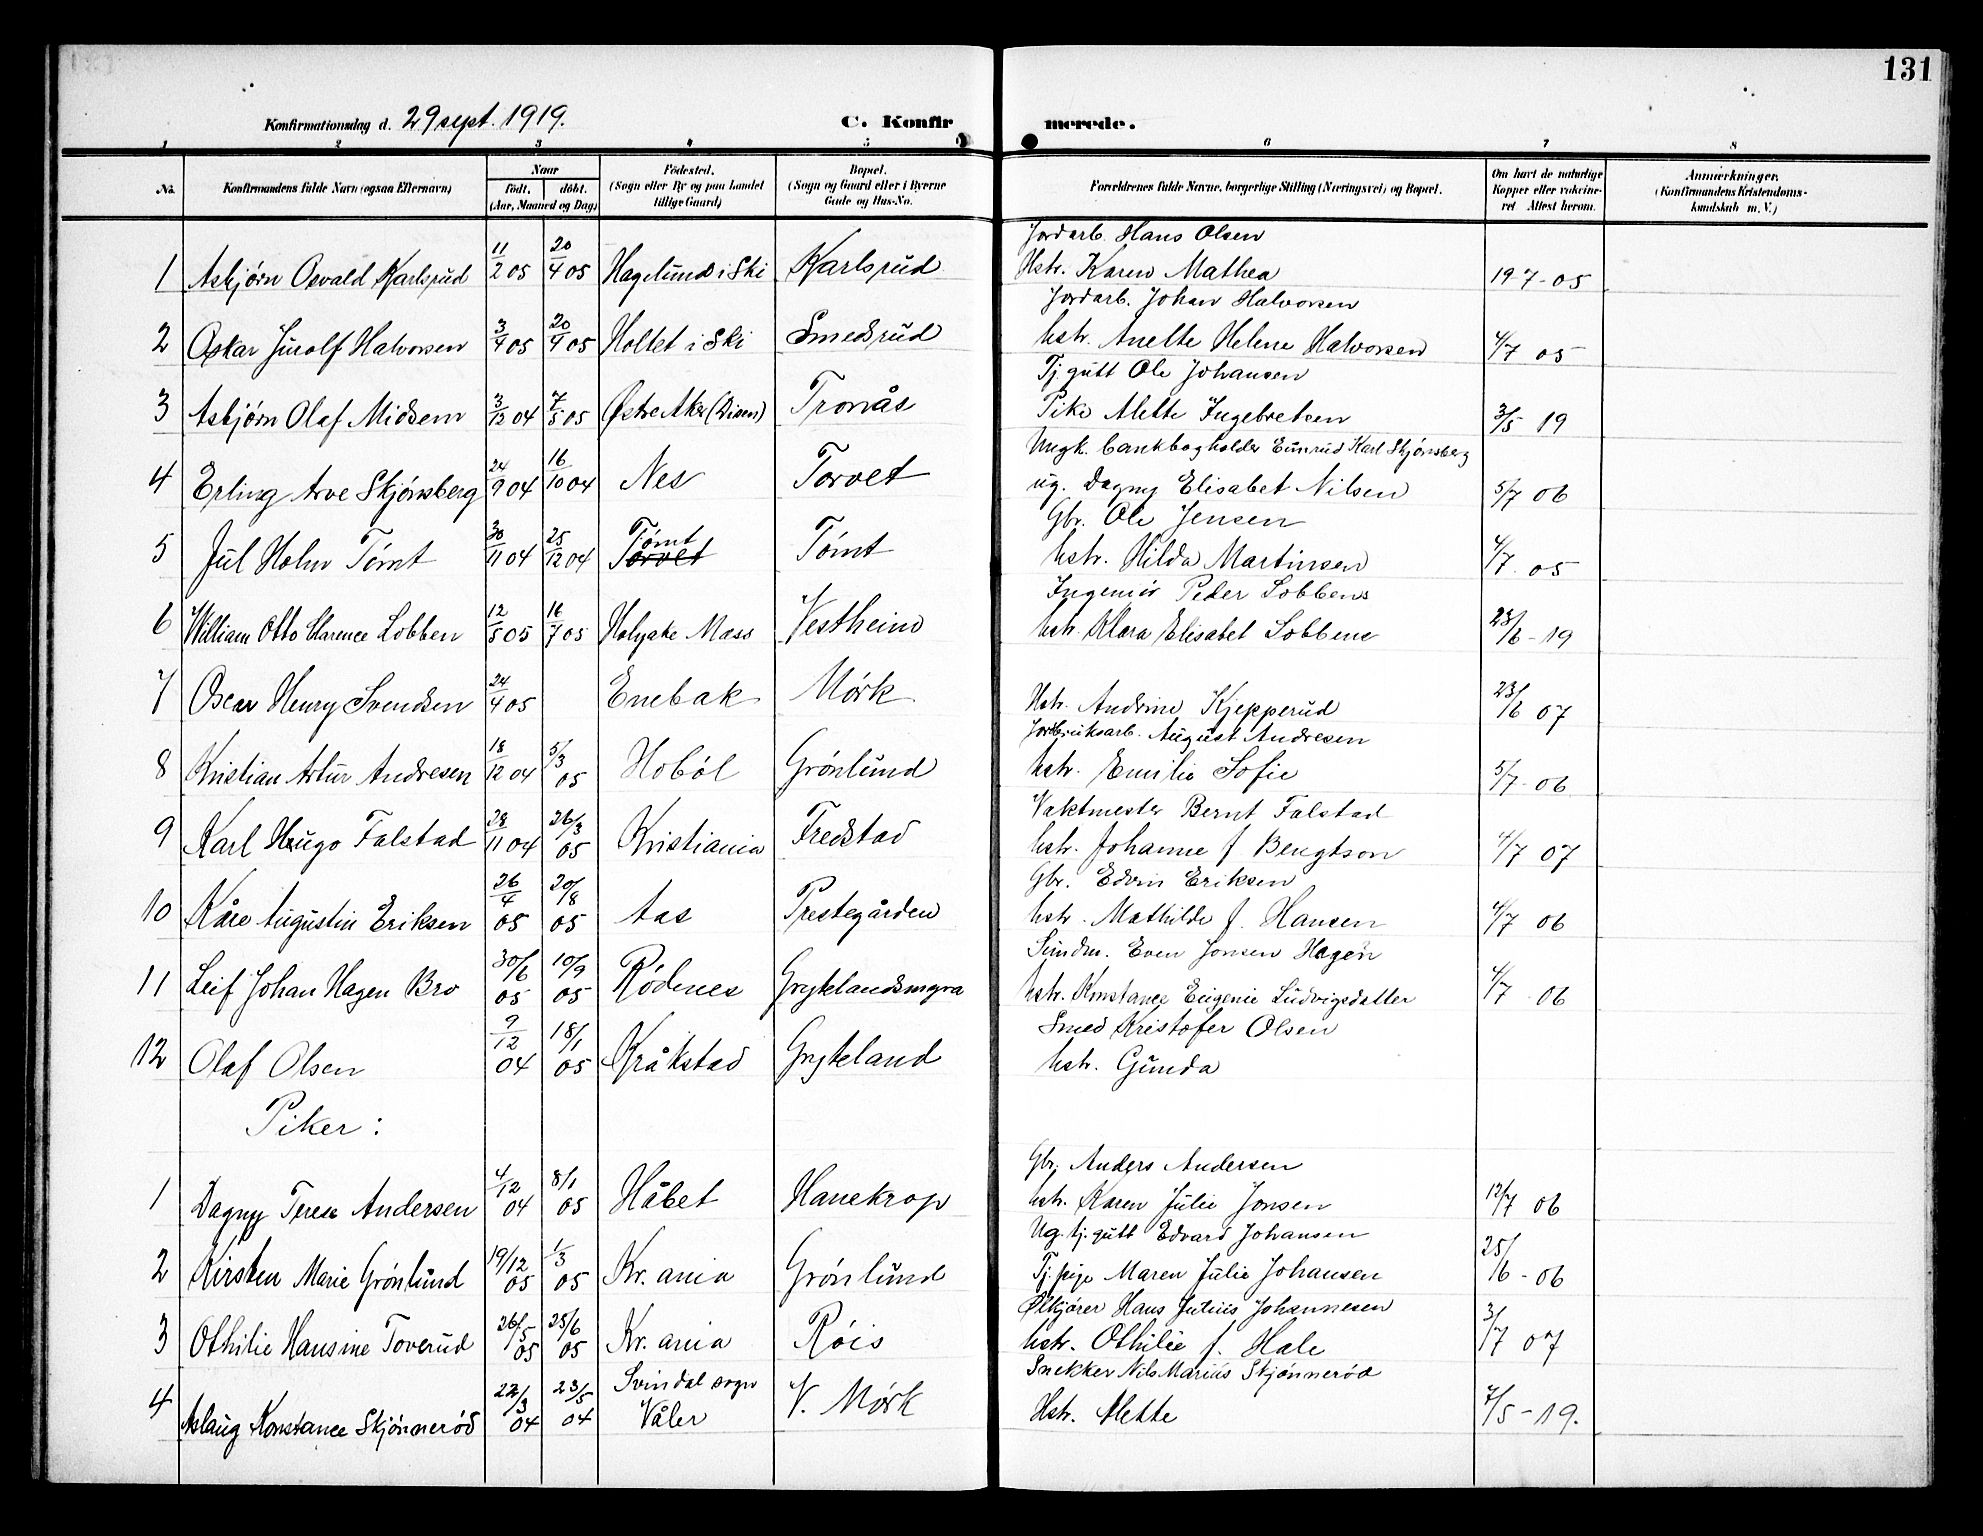 131
Konfirmationsdag d. 29 sept. 1919. C. Konfirmerede.
1 2 3 4 5 6 7 8
No. Konfirmandens fulde Navn (ogsaa Efternavn) Naar født. døbt. (Aar, Maaned og Dag) Fødested. (Sogn eller By og paa Landet tillige Gaard) Bopæl. (Sogn og Gaard eller i Byerne Gade og Hus-No. Forældrenes fulde Navne, borgerlige Stilling (Næringsvei) og Bopæl. Om havt de naturlige Kopper eller vakcineret Attest herom. Anmærkninger, (Konfirmandens Kristendomskundskab m. V.)
Jordarb. Hans Olsen
1 Asbjørn Osvald Karlsrud 11/2 05 20/4 05 Hagelund i Ski Karlsrud Hstr. Karen Mathea 19 7-05
Jordarb. Johan Halvorsen
2 Oskar Halvorsen 3/4 05 20/4 05 Holtet i Ski Smedsrud hstr. Anette Helene Halvorsen 4/7 05
Tj. gutt Ole Johansen
3 Asbjørn Olaf Midsem 3/12 04 7/5 05 Østre Aker (Disen) Tronås Pike Alette Ingebretsen 3/5 19
Ungk. bankbogholder Karl Skjønsberg
4 Erling Arve Skjønsberg 24/9 04 16/10 04 Nes Torvet ug. Dagny Elisabet Nilsen 5/7 06
Gbr. Ole Jensen
5 Jul Holm Tømt 30/11 04 25/12 04 Tømt Torvet Tømt hstr. Hilda Martinsen 4/7 05
Ingeniør Peder Lobbens
6 William Otto Clarence Lobben 12/5 05 16/7 05 Holyoke Mass Vestheim hstr. Klara Elisabet Lobbene 23/6-19
7 Oscar Henry Svendsen 24/4 05 Enebak Mørk Hstr. Andrine Kjepperud 23/6 07
Jordbruksarb. August Andresen
8 Kristian Artur Andresen 18/12 04 5/3 05 Hobøl Grønlund hstr. Emilie Sofie 5/7-06
Vaktmester Bernt Falstad
9 Karl Hugo Falstad 28/11 04 26/3 05 Kristiania Fredstad hstr. Johanne f Bengtson 4/7 07
Gbr. Edvin Eriksen
10 Kåre Augustin Eriksen 26/4 05 20/8 05 Aas Prestegården hstr. Mathilde f. Hansen 4/7 06
Even Jonsen Hagen
11 Leif Johan Hagen Bro 30/6 05 10/9 05 Rødenes Grytelandsmyra hstr. Konstance Eugenie Ludvigsdatter 4/7 06
Smed Kristofer Olsen
12 Olaf Olsen 9/12 04 18/1 05 Kråkstad Gryteland hstr. Gunda
Piker:
Gbr. Anders Andersen
1 Dagny Terese Andersen 4/12 04 8/1 05 Håbet Hanekrop hstr. Karen Julie Jonsen 12/7 06
Ug. tj. gutt Edvard Johansen
2 Kirsten Marie Grønlund 19/12 05 1/3 05 Kr. ania Grønlund Tj. pige Maren Julie Johansen 25/6-06
Ølkjører Hans Julius Johannesen
3 Othilie Hansine Toverud 26/5 05 25/6 05 Kr. ania Røis hstr. Othilie f. Hale 3/7 07
Snekker Nils Marius Skjønnerød
4 Aslaug Konstance Skjønnerød 22/3 04 23/5 04 Svindal sogn Våler V. Mørk Hstr. Alette 7/5-19.